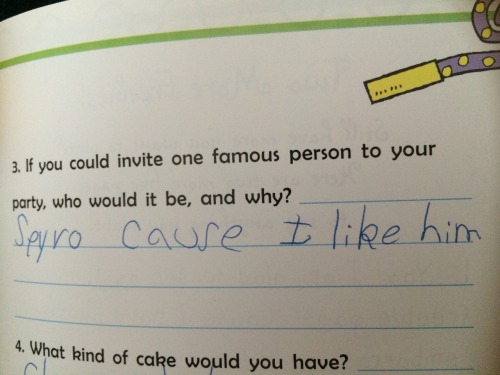 3. If you could invite one famous person to your
party, who would it be, and why?
Spyro cause I like him
4. What kind of cake would you have?